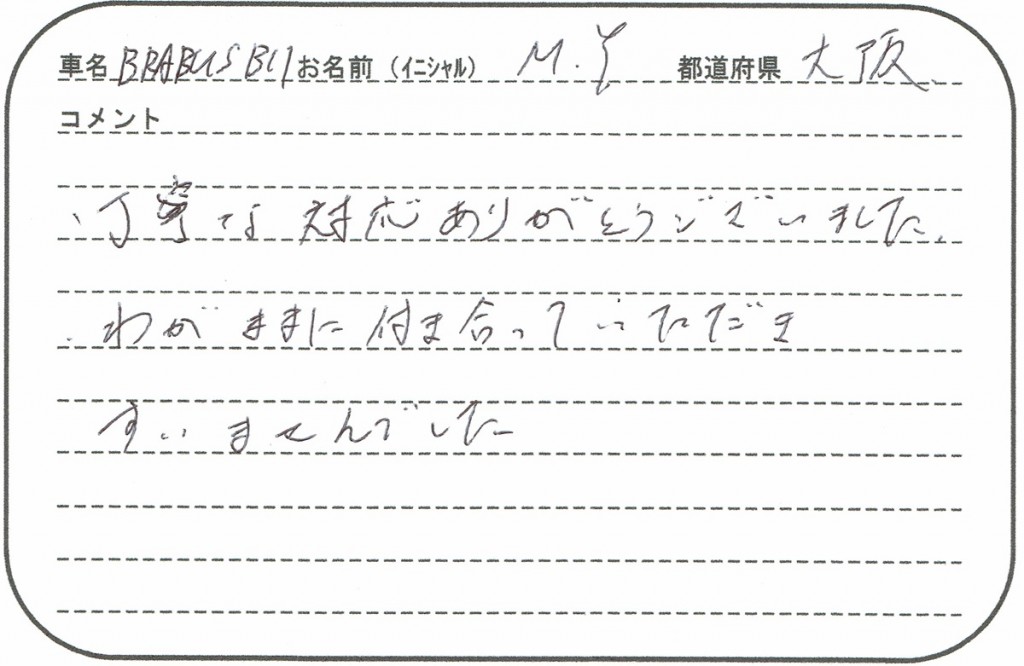 車名 BRABUS B11 お名前（ｲﾆｼｬﾙ） M.Y 都道府県 大阪
コメント
、丁寧な対応ありがとうございました。
、わがままに付き合っていただき
すいませんでした